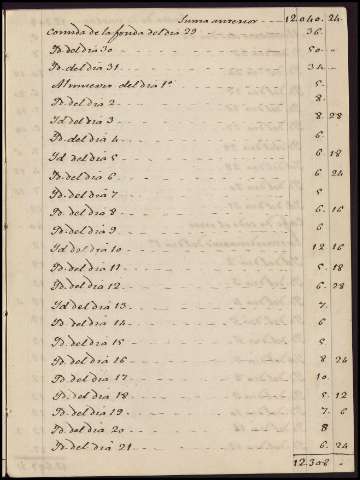 Suma anterior 12.040. 24.
Comida de la fonda del dia 29 36.
Yd. del dia 30 50.
Yd. del dia 31 34.
Almuerzo del dia 1º 5.
Yd. del dia 2 8.
Yd. del dia 3 8. 28
Yd. del dia 4 6.
Yd. del dia 5 6. 18
Yd. del dia 6 6. 24
Yd. del dia 7 5.
Yd. del dia 8 6. 16
Yd. del dia 9 6
Yd. del dia 10 12. 16
Yd. del dia 11 5. 18
Yd. del dia 12 6. 28
Yd. del dia 13 7.
Yd. del dia 14 6.
Yd. del dia 15 5.
Yd. del dia 16 8 24
Yd. del dia 17 10.
Yd. del dia 18 5. 12
Yd. del dia 19 7. 6
Yd. del dia 20 8
Yd. del dia 21 6. 24
12.308